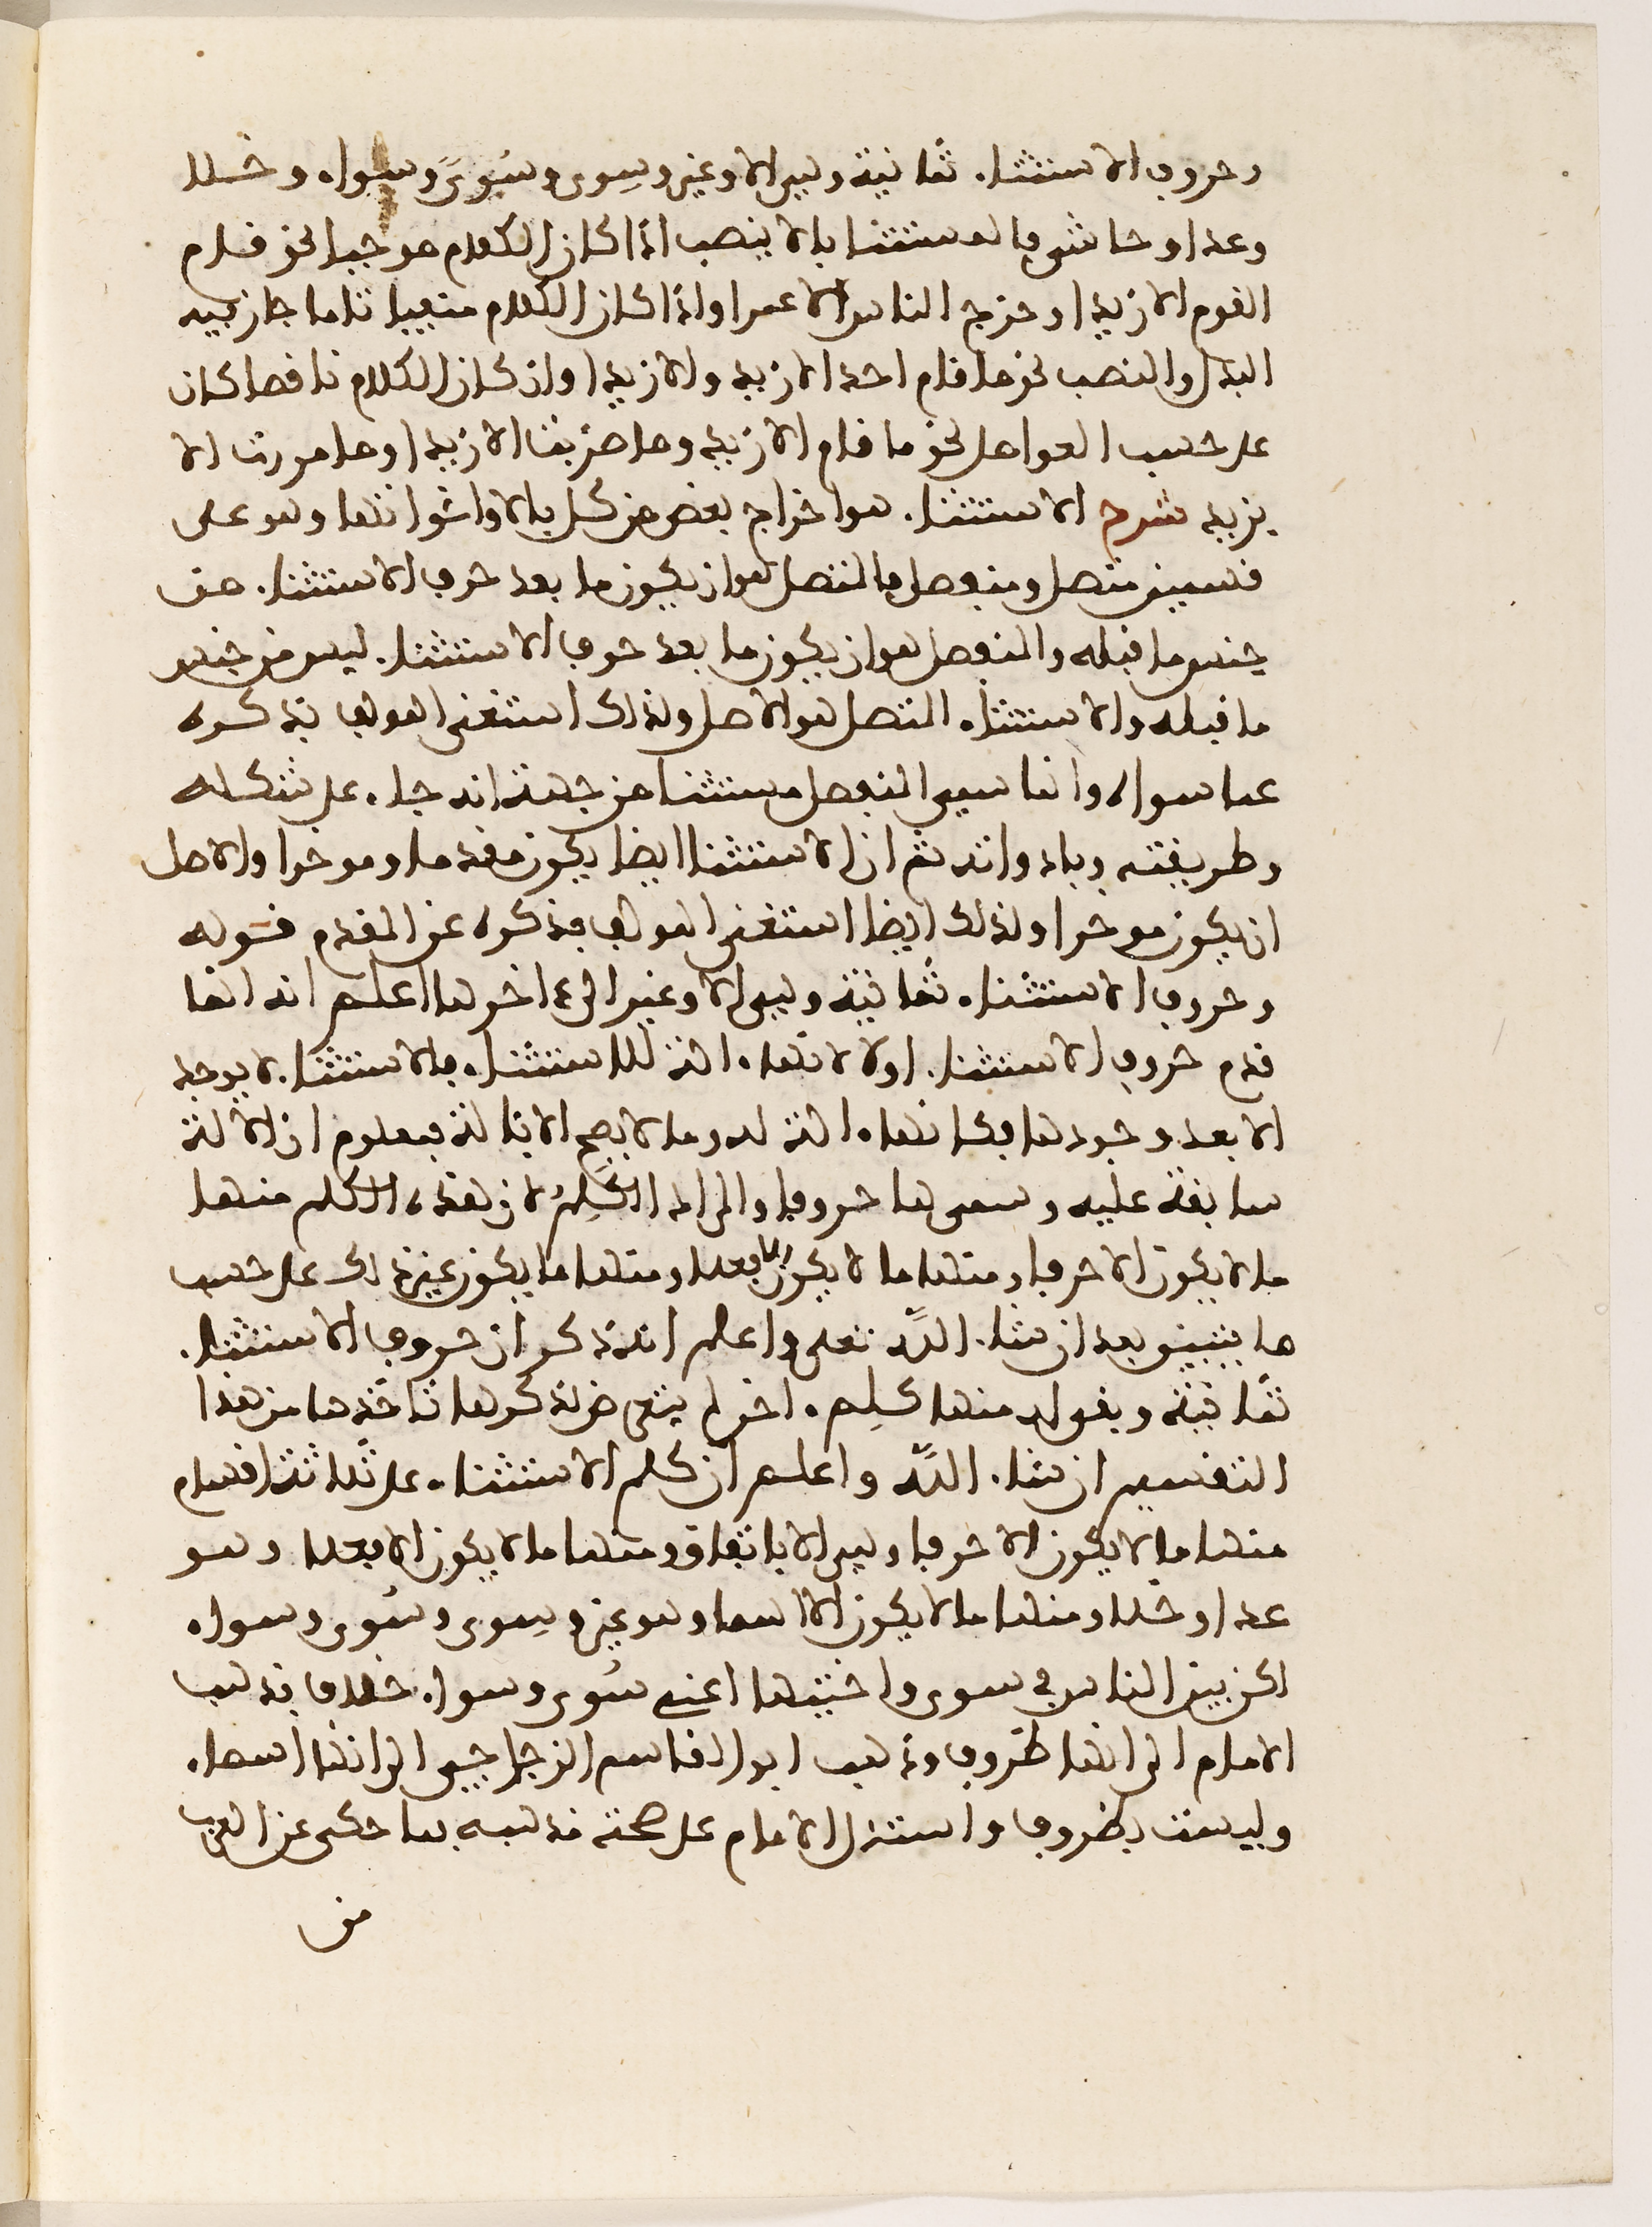 وحروف الاستثناء ثمانية وهي الا وغير وسِوى وسُوَى وسواء وخلا
وعدا وحاشى فالمستثنا بالا ينصب اذا كان الكلام موجبا نحو قام
القوم الا زيدا وخرج الناس الا عمرا واذا كان الكلام منفيا تاما جاز فيه
البدل والنصب نحو ما قام احد الا زيد والا زيدا وان كان الكلام ناقصا كان
على حسب العوامل نحو ما قام الا زيد وما ضربت الا زيدا وما مررت الا
بزيد شرح الاستثناء هو اخراج بعض من كل بالا واخواتها وهو على
قسمين متصل ومنفصل فالمتصل هو ان يكون ما بعد حرف الاستثناء من
جنس ما قبله والمنفصل هو ان يكون ما بعد حرف الاستثناء ليس من جنس
ما قبله والاستثناء المتصل هو الاصل ولذلك استغنى المولف بذكره
عما سواه وانما سمي المنفصل مستثنا من جهة انه جاء على شكله
وطريقته وبادواته ثم ان الاستثنا ايضا يكون مقدما وموخرا والاصل
ان يكون موخرا ولذلك ايضا استغنى المولف بذكره عن المقدم قوله
وحروف الاستثناء ثمانية وهي الا وغير الى اخرها اعلم انه انما
قدم حروف الاستثناء اولا لانها ءالة للاستثناء فالاستثناء لا يوجد
الا بعد وجودها فكانها ءالة له وما لا يصح الا بئالة فمعلوم ان الالة
سابقة عليه وسمى ها حروفا والمراد الكَلِمُ لان هذه الكلم منها
ما لا يكون الا حرفا ومنها ما لا يكون الا فعلا ومنها ما يكون غير ذلك على حسب
ما يتبين بعد ان شاء اللّه تعلى واعلم انه ذكر ان حروف الاستثناء
ثمانية وبقي له منها كلم ءاخر لم يتعرض لذكرها تاخذها من هذا
التقسيم ان شاء اللّه واعلم ان كلم الاستثناء على ثلاثة اقسام
منها ما لا يكون الا حرفا وهي الا باتفاق ومنها ما لا يكون الا فعلا وهو
عدا وخلا ومنها ما لا يكون الا اسما وهو غير وسِوى وسُوى وسواء
لكن بين الناس في سوى واختيها اعني سُوى وسواء خلاف فذهب
الامام الى انها ظروف وذهب ابو القاسم الزجاجي الى انها اسماء
وليست بظروف واستدل الامام على صحة مذهبه بما حكى عن العرب
من